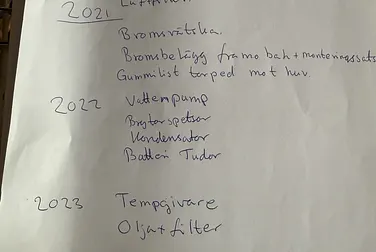 2021
Bromsvätska.
Bromsbelägg fram o bak + monteringssats
Gummilist torped mot huv.
2022 Vattenpump
Brytarspetsar
Kondensator
Batteri Tudor
2023 Tempgivare
Olja + filter